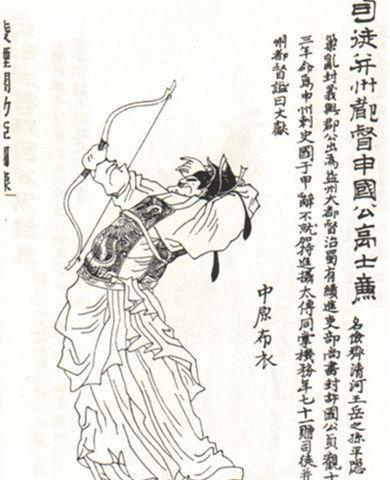 司徒并州都督申國公高士廉
名儉齊清河王岳之孫平隱
巢亂封義興郡公出為益州大都督治蜀有績進吏部尚書封許國公貞觀十
三年命爲申州刺史國于申辭不就加特進攝太傅同掌機務年七十一贈司徒并
州都督謚曰文獻
中原布衣
凌煙閣功臣圖像